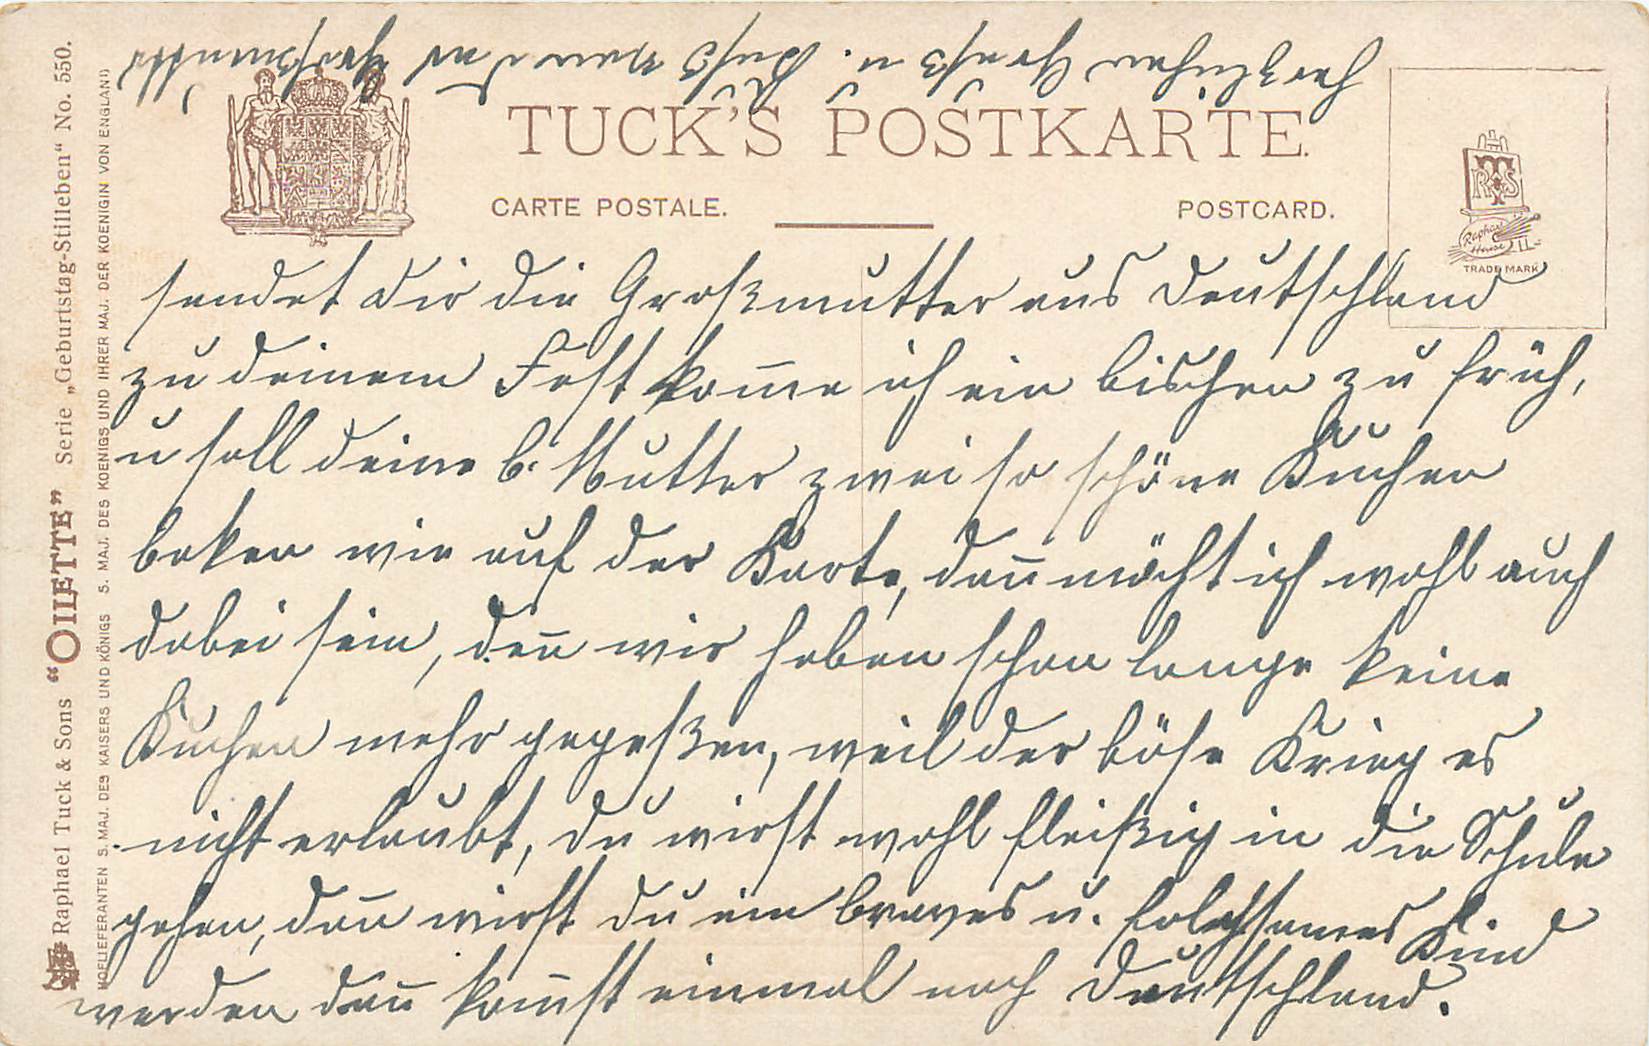 TUCK'S POSTKARTE.
CARTE POSTALE.
POSTCARD.
RTS
Raphael House
TRADE MARK
sendet dir die Großmutter aus Deutschland
zu deinem Fest kom̅e ich ein bischen zu früh,
u soll deine l. Mutter zwei so schöne Kuchen
baken wie auf der Karte, dan̅ möcht ich wohl auch
dabei sein, den̅ wir haben schon lange keine
Kuchen mehr gegeßen, weil der böse Krieg es
nicht erlaubt, du wirst wohl fleißig in die Schule
gehen, dan̅ wirst du ein braves u. folgsames Kind
werden dan̅ kom̅st einmal nach Deutschland.
herzlichen Gruß u. Kuß von der Großmutter
Raphael Tuck & Sons "OILETTE" Serie „Geburtstag-Stilleben" No. 550.
HOFLIEFERANTEN S. MAJ. DES KAISERS UND KÖNIGS S. MAJ. DES KOENIGS UND IHRER MAJ. DER KOENIGIN VON ENGLAND